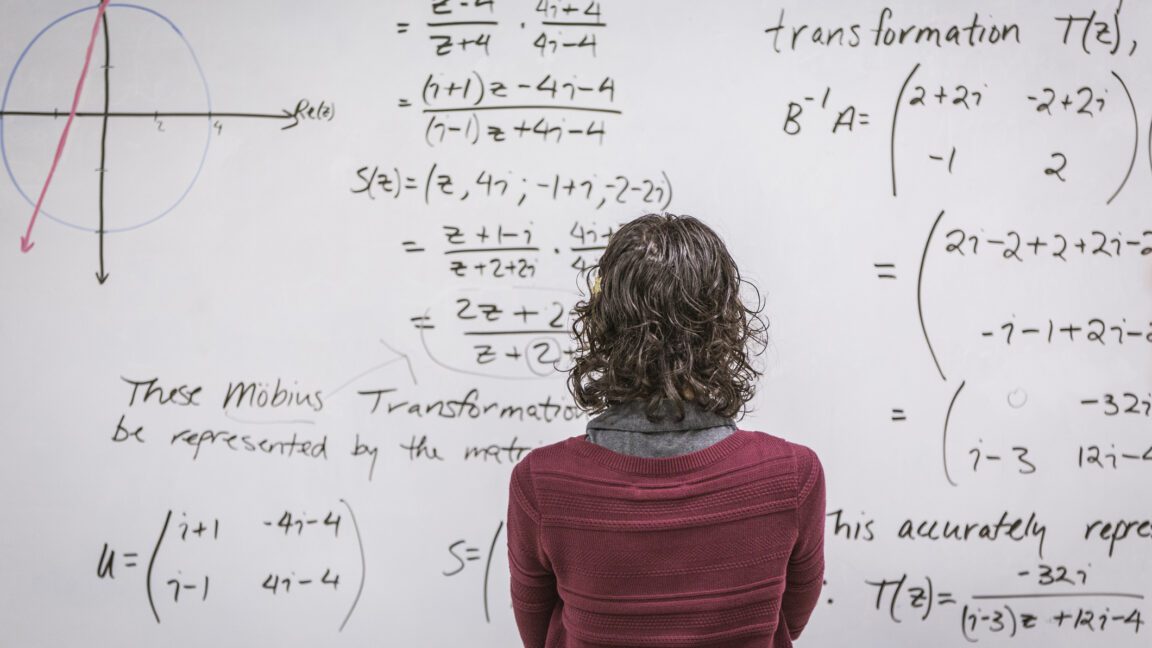 Re(z)
2 4
= z-4/z+4 · 4i+4/4i-4
= (i+1)z-4i-4/(i-1)z+4i-4
S(z)=(z, 4i; -1+i, -2-2i)
= z+1-i/z+2+2i · 4i+
= 2z+2/z+2
These Möbius Transformation
be represented by the matr
U= (i+1 -4i-4
i-1 4i-4)
S=(
transformation T(z),
B⁻¹A= (2+2i -2+2i
-1 2)(
= (2i-2+2+2i-2
-i-1+2i-2
= (0 -32i
i-3 12i-4
This accurately repres
. T(z)= -32i/(i-3)z+12i-4